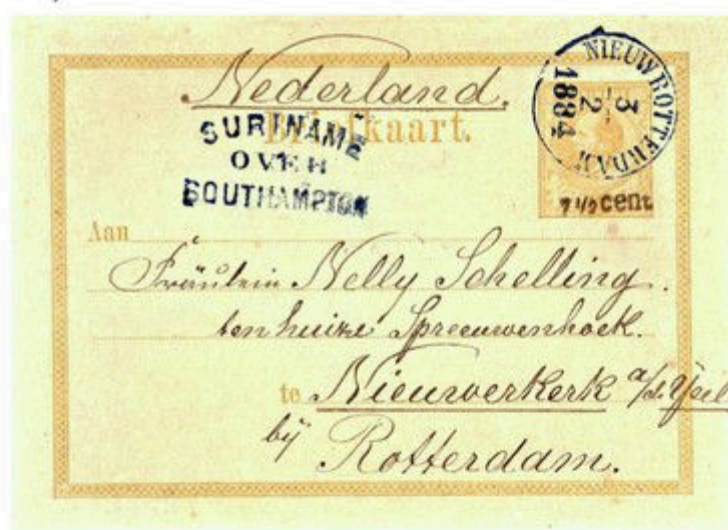 Nederland.
Briefkaart.
SURINAME
OVER
SOUTHAMPTON
NIEUW ROTTERDAM
3
2
1884
7 1/2 cent
Aan
Fräulein Nelly Schelling.
ten huize Spreeuwenhoek.
te Nieuwerkerk a/d. Yssel
bij
Rotterdam.